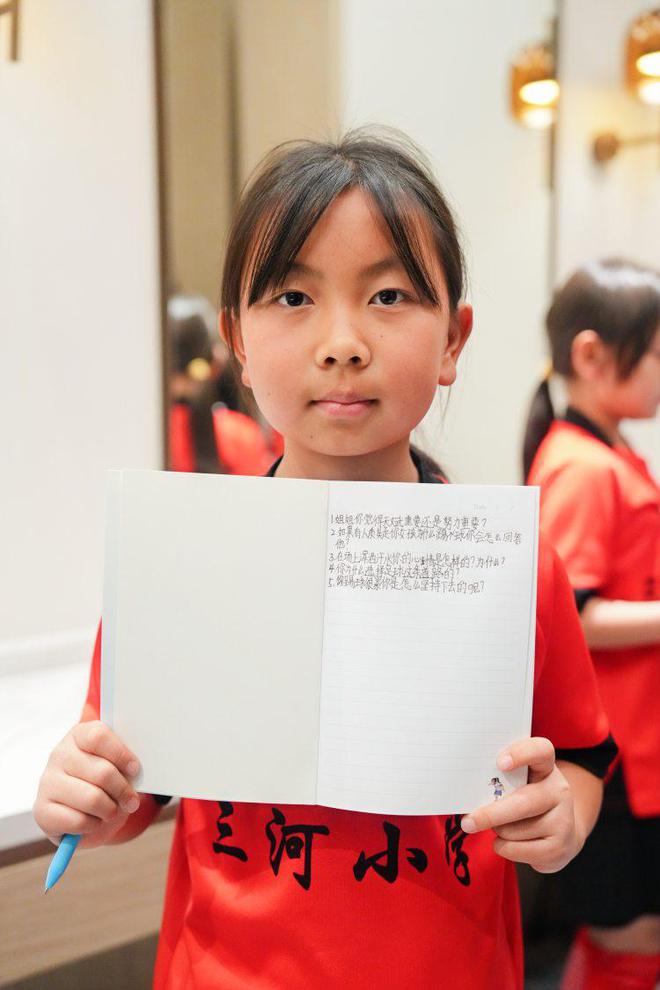 1.姐姐你觉得天赋重要还是努力重要?
2.如果有人质疑你女孩为什么踢足球你会怎么回答
他?
3.在场上挥洒汗水你的心情是怎样的?为什么?
4.你为什么选择足球这条道路的?
5.踢球很累你是怎么坚持下去的呢?
三河小学